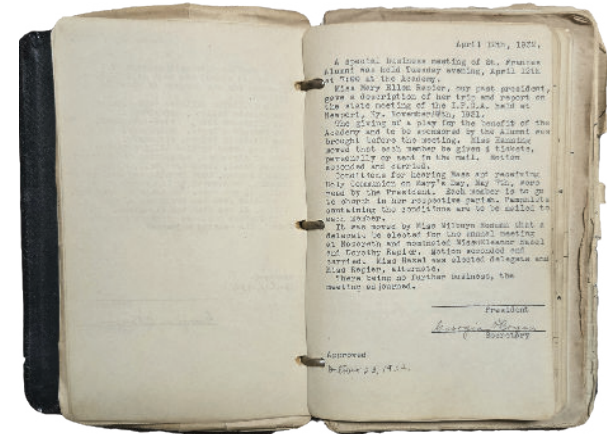 April 12th, 1932.
A special business meeting of St. Frances
Alumni was held Tuesday evening, April 12th
at 7:00 at the Academy.
Miss Mary Ellen Rapier, our past president,
gave a description of her trip and report on
the state meeting of the I.F.C.A. held at
Newport, Ky. November 1931.
The giving of a play for the benefit of the
Academy and to be sponsored by the Alumni was
brought before the meeting. Miss Manning
moved that each member be given tickets,
personally or send in the mail. Motion
seconded and carried.
Conditions for hearing Mass and receiving
Holy Communion on Mary's Day, May 7th, were
read by the President. Each member is to go
to church in her respective parish. Pamphlets
containing the conditions are to be mailed to
each member.
It was moved by Miss that a
delegate be elected for the annual meeting
at Nazareth and nominated Miss Eleanor Hazel
and Dorothy Rapier. Motion seconded and
carried. Miss Hazel was elected delegate and
Miss Rapier, alternate.
There being no further business, the
meeting adjourned.
President
Secretary
Approved
1932.